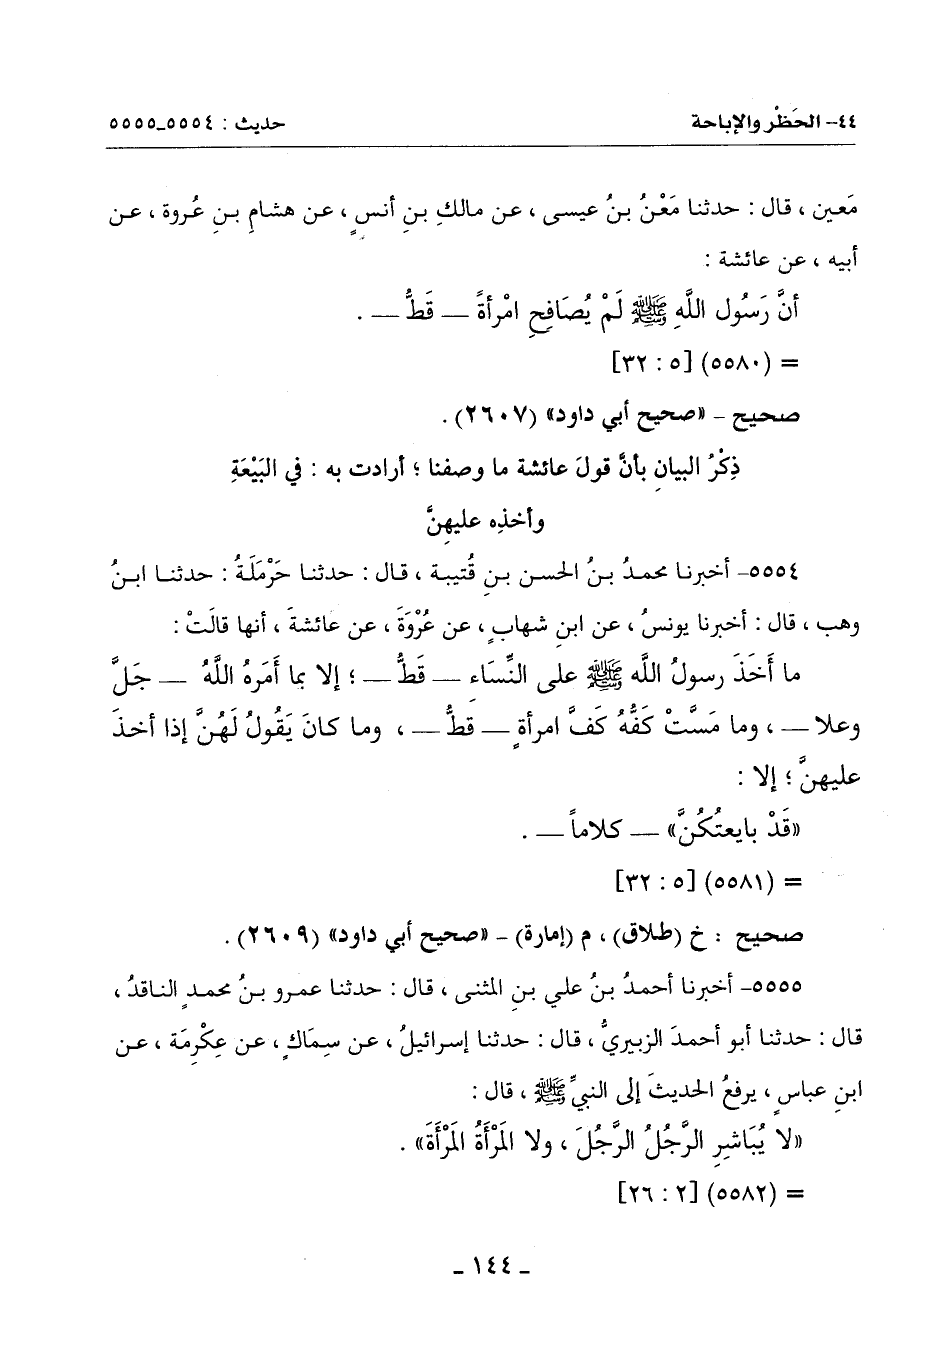 ٤٤- الحَظْر والإباحة حديث : ٥٥٥٤-٥٥٥٥
مَعين ، قال : حدثنا مَعْنُ بنُ عيسى ، عن مالكِ بنِ أنسٍ ، عن هشامِ بنِ عُروة ، عن
أبيه ، عن عائشة :
أنَّ رَسُول اللَّهِ ﷺ لَمْ يُصَافِحِ امْرأةً — قَطُّ — .
= (٥٥٨٠) [٥ : ٣٢]
صحيح - «صحيح أبي داود» (٢٦٠٧) .
ذِكْرُ البيانِ بأنَّ قولَ عائشة ما وصفنا ؛ أرادت به : في البَيْعَةِ
وأخذِه عليهِنَّ
٥٥٥٤- أخبرنا محمدُ بنُ الحسن بنِ قُتيبة ، قال : حدثنا حَرْمَلَةُ : حدثنا ابنُ
وهب ، قال : أخبرنا يونسُ ، عن ابنِ شهابٍ ، عن عُرْوَةَ ، عن عائشةَ ، أنها قالَتْ :
ما أَخَذَ رسولُ اللَّه ﷺ على النِّسَاءِ — قَطُّ — ؛ إلا بما أَمَرَهُ اللَّهُ — جَلَّ
وعلا — ، وما مَسَّتْ كَفُّهُ كَفَّ امرأةٍ — قطُّ — ، وما كانَ يَقُولُ لَهُنَّ إذا أخذَ
عليهنَّ ؛ إلا :
«قَدْ بايعتُكُنَّ» — كلاماً — .
= (٥٥٨١) [٥ : ٣٢]
صحيح : خ (طلاق) ، م (إمارة) - «صحيح أبي داود» (٢٦٠٩) .
٥٥٥٥- أخبرنا أحمدُ بنُ علي بنِ المثنى ، قال : حدثنا عمرو بنُ محمدٍ الناقدُ ،
قال : حدثنا أبو أحمدَ الزبيريُّ ، قال : حدثنا إسرائيلُ ، عن سِمَاكٍ ، عن عِكْرِمَة ، عن
ابنِ عباسٍ ، يرفعُ الحديثَ إلى النبيِّ ﷺ ، قال :
«لا يُبَاشرِ الرَّجُلُ الرَّجُلَ ، ولا المَرْأَةُ المَرْأَةَ» .
= (٥٥٨٢) [٢ : ٢٦]
- ١٤٤ -